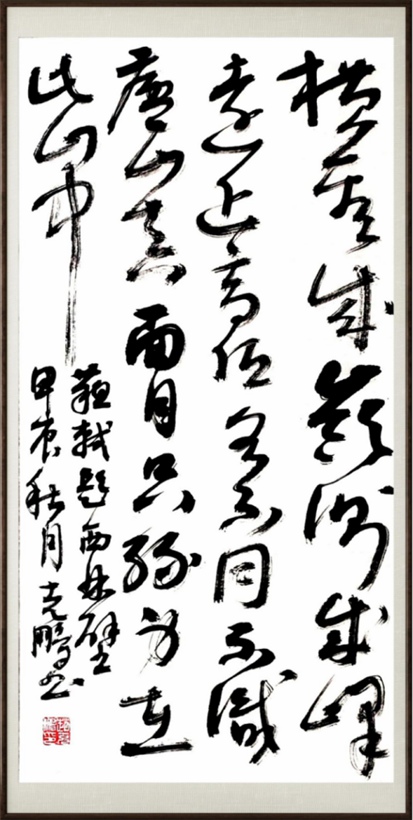 橫看成嶺側成峰
遠近高低各不同不識
廬山真面目只緣身在
此山中
蘇軾題西林壁
甲辰秋月克鵬书